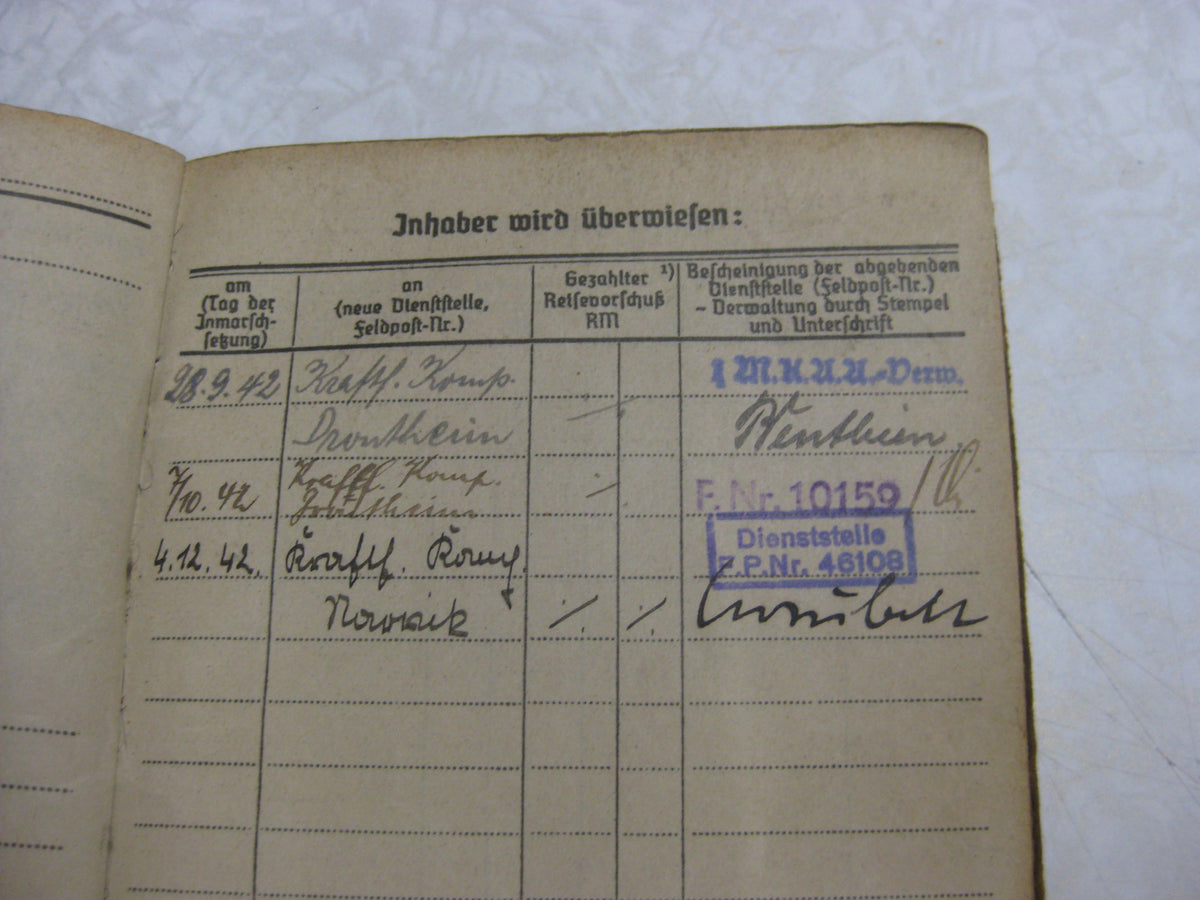 Inhaber wird überwiesen:
am
(Tag der
Inmarsch-
setzung)
an
(neue Dienststelle,
Feldpost-Nr.)
Gezahlter ¹)
Reisevorschuß
RM
Bescheinigung der abgebenden
Dienststelle (Feldpost-Nr.)
- Verwaltung durch Stempel
und Unterschrift
28.9.42 Kraftf. Komp. M.K.A.A.-Verw.
Drontheim
7/10. 42 Kraftf. Komp. F. Nr. 10159
Drontheim
Dienststelle
F.P.Nr. 46108
4.12.42. Kraftf. Komp.
Narvik ./. ./.